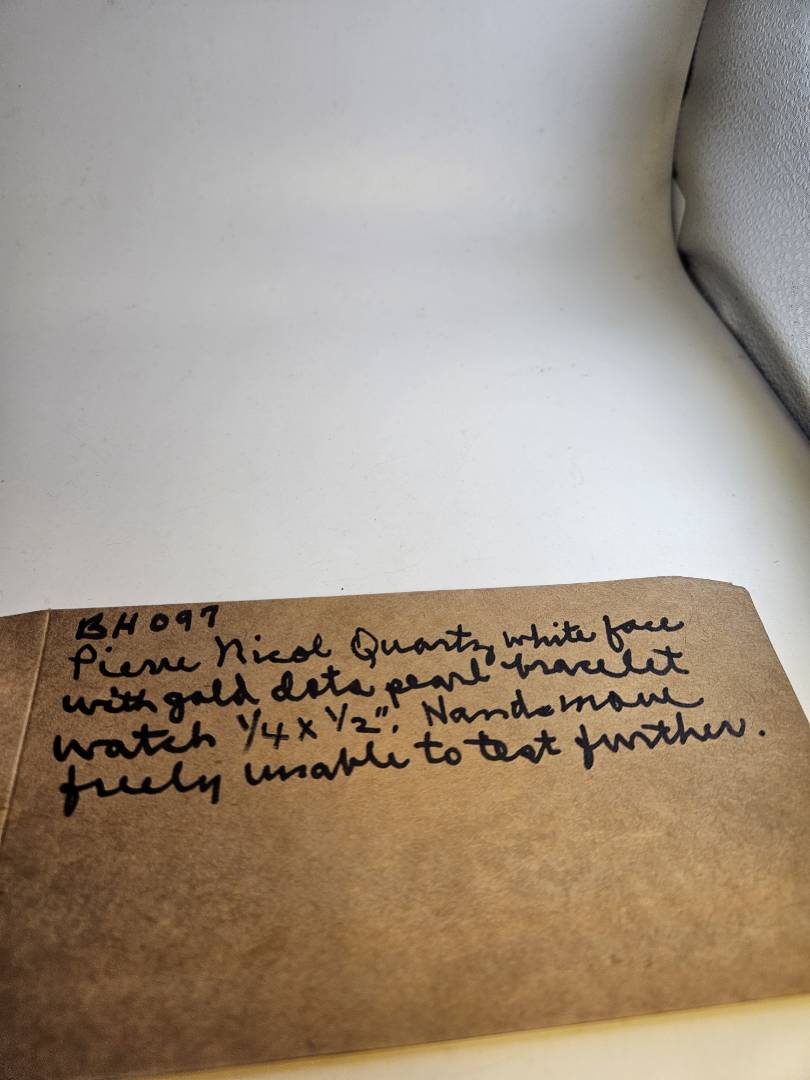 BH097
Pierre Nicol Quartz white face
with gold dots pearl bracelet
watch 1/4 x 1/2". Hands move
freely unable to test further.